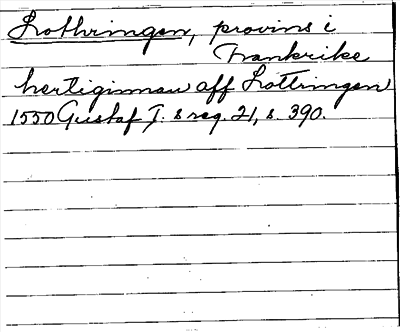 Lothringen, provins i
Frankrike
hertiginnan aff Lottringen
1550 Gustaf I. s reg. 21, s. 390.